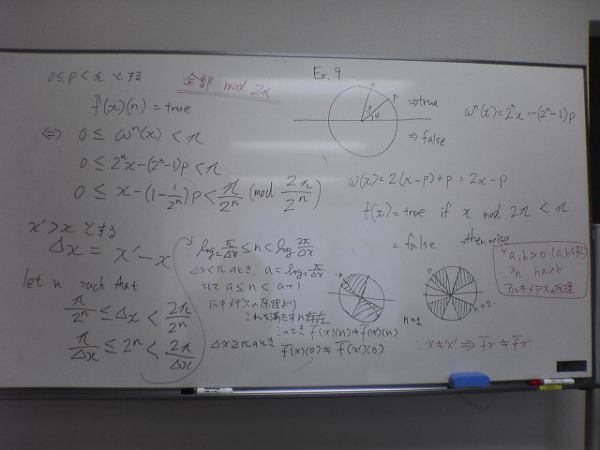 0≤p<π とする
全部 mod 2π
Ex. 9
f̄(x)(n) = true
⇔ 0 ≤ ωⁿ(x) < π
0 ≤ 2ⁿx-(2ⁿ-1)p < π
0 ≤ x-(1-1/2ⁿ)p < π/2ⁿ (mod 2π/2ⁿ)
x'>x とする
Δx = x'-x
let n such that
π/2ⁿ ≤ Δx < 2π/2ⁿ
π/Δx ≤ 2ⁿ < 2π/Δx
log₂ π/Δx ≤ n < log₂ 2π/Δx
Δx<π のとき, a = log₂ π/Δx
とヒ a ≤ n < a+1
アルキメデスの原理より
これを満たすn存在
このとき f̄(x)(n) ≠ f̄(x')(n)
Δx≥π のとき
f̄(x)(0) ≠ f̄(x')(0)
π
p
θ
φ
⇒true
⇒false
ωⁿ(x)=2ⁿx-(2ⁿ-1)p
ω(x)=2(x-p)+p = 2x-p
f(x)=true if x mod 2π < π
= false otherwise
∀a,b>0 (a,b∈実)
∃n. na>b
アルキメデスの原理
n=1
n=2
∴ x≠x' ⇒ f̄x ≠ f̄x'